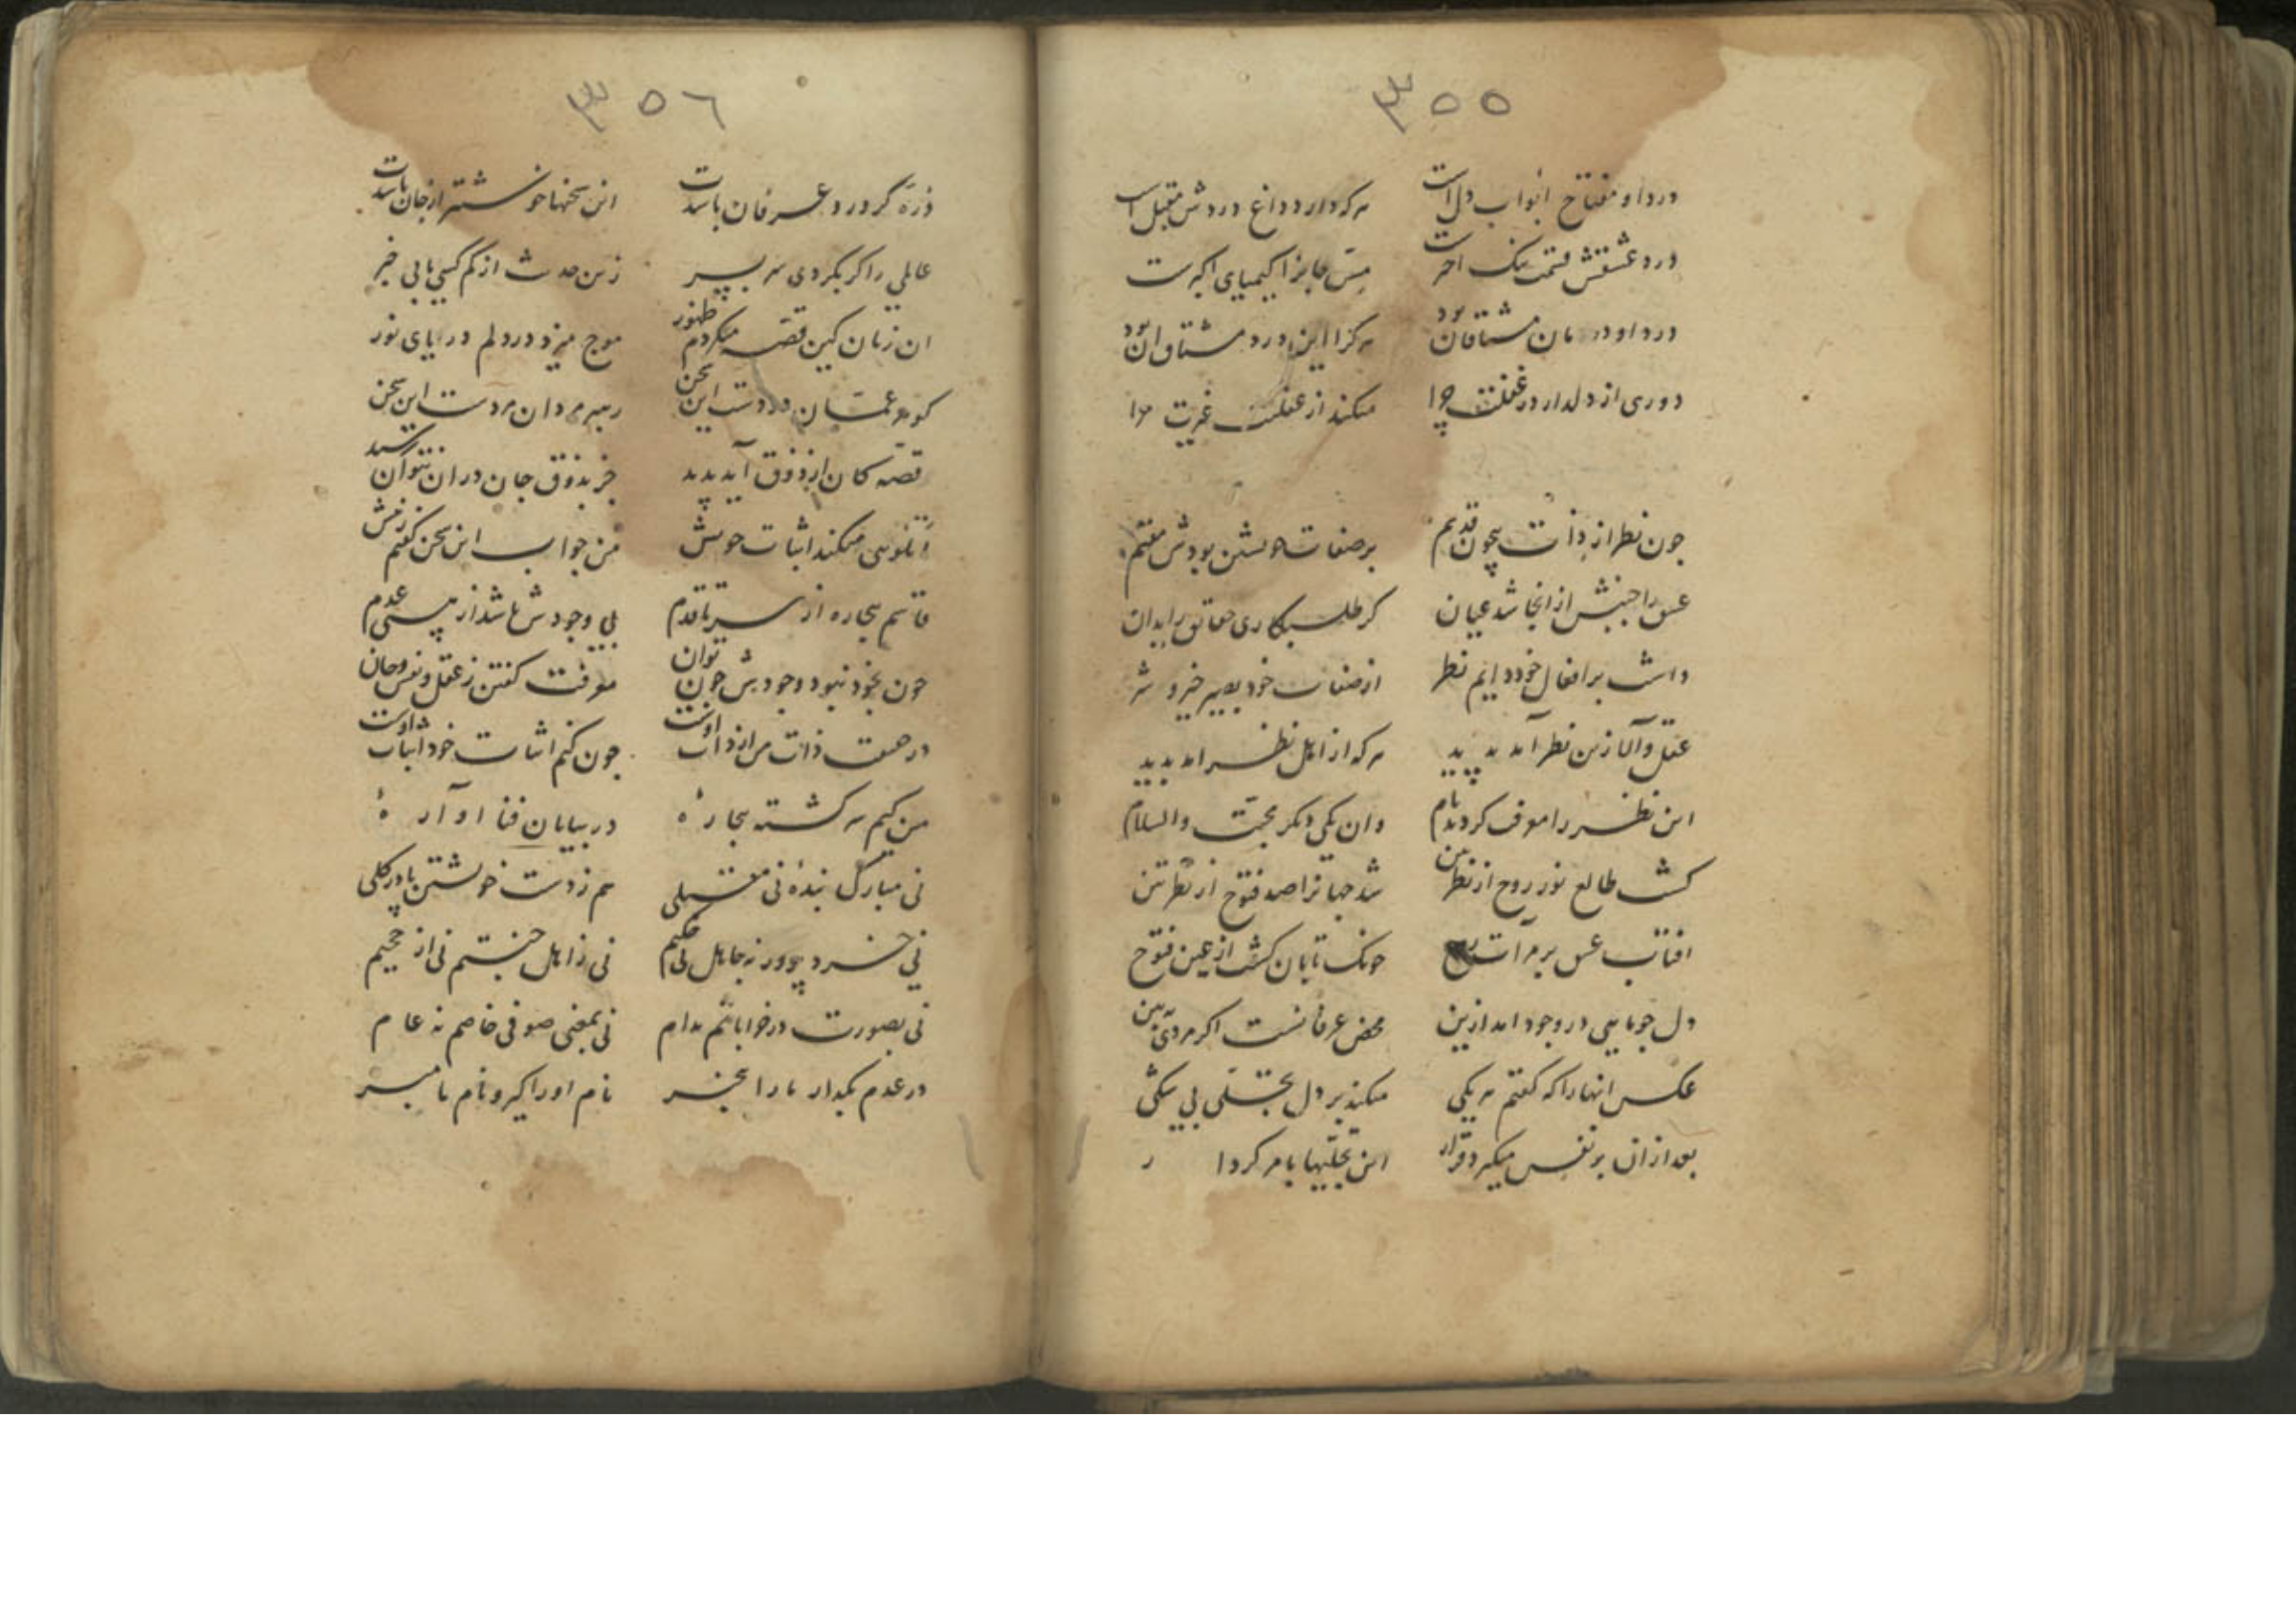 ۳۵۵
درد او مفتاح ابواب دل است هرکه دارد داغ دردش مقبل است
درد عشقش قسمت سنک احمرست مس جانرا کیمیای اکبرست
درد او درمان مشتاقان بود هرکرا این درد مشتاق ان بود
دوری از دلدار در غفلت چرا میکند از غفلت غربت مرا
چون نظر از ذات بیچون قدیم بر صفات خویشتن بودش مقیم
عشق را جنبش از انجا شد عیان کر طلبکاری حقایق را بدان
داشت بر افعال خود دایم نظر از صفات خود بصیر خیر و شر
عقل و آلا زین نظر آمد پدید هرکه از اهل نظر امد بدید
این نظر را معرفت کردند نام وان یکی دیکر محبت والسلام
کشت طالع نور روح از نظرتین شد جهانرا صد فتوح از نظرتین
افتاب عشق بر مرآت روح چونک تابان کشت از عین فتوح
دل چو ماهی در وجود امد ازین محض عرفانست اکر مردی ببین
عکس انها را که کفتم هر یکی میکند بر دل تجلی بی شکی
بعد ازان بر نفس میکیرد قرار این تجلیها بامر کردار
۳۵۶
ذره کر درد عرفان باشدت این سخنها خوشتر از جان باشدت
عالمی را کر بکردی سر بسر زین حدیث از کم کسی یابی خبر
ان زمان کین قصه میکردم ظهور موج میزد در دلم دریای نور
کوهر عمان دردست این سخن رهبر مردان مردست این سخن
قصه کان از ذوق آید پدید جز بذوق جان دران نتوان رسید
تا نکویی میکند اثبات خویش من جواب این سخن کفتم ز پیش
قاسم بیچاره از سر تا قدم بی وجودش باشد از هستی عدم
چون بخود نبود وجودش چون توان معرفت کفتن ز عقل و نفس و جان
در حقیقت ذات من از ذات اوست چون کنم اثبات خود اثبات اوست
من کیم سرکشته بیچارهٔ در بیابان فنا آوارهٔ
نی مبارک بندهٔ نی مقبلی هم ز دست خویشتن پا در کلی
نی خردپرور نه جاهل نی حکیم نی ز اهل جنتم نی از جحیم
نی بصورت در خراباتم مدام نی بمعنی صوفی خاصم نه عام
در عدم بکذار ما را بیخبر نام او را کیر و نام ما مبر